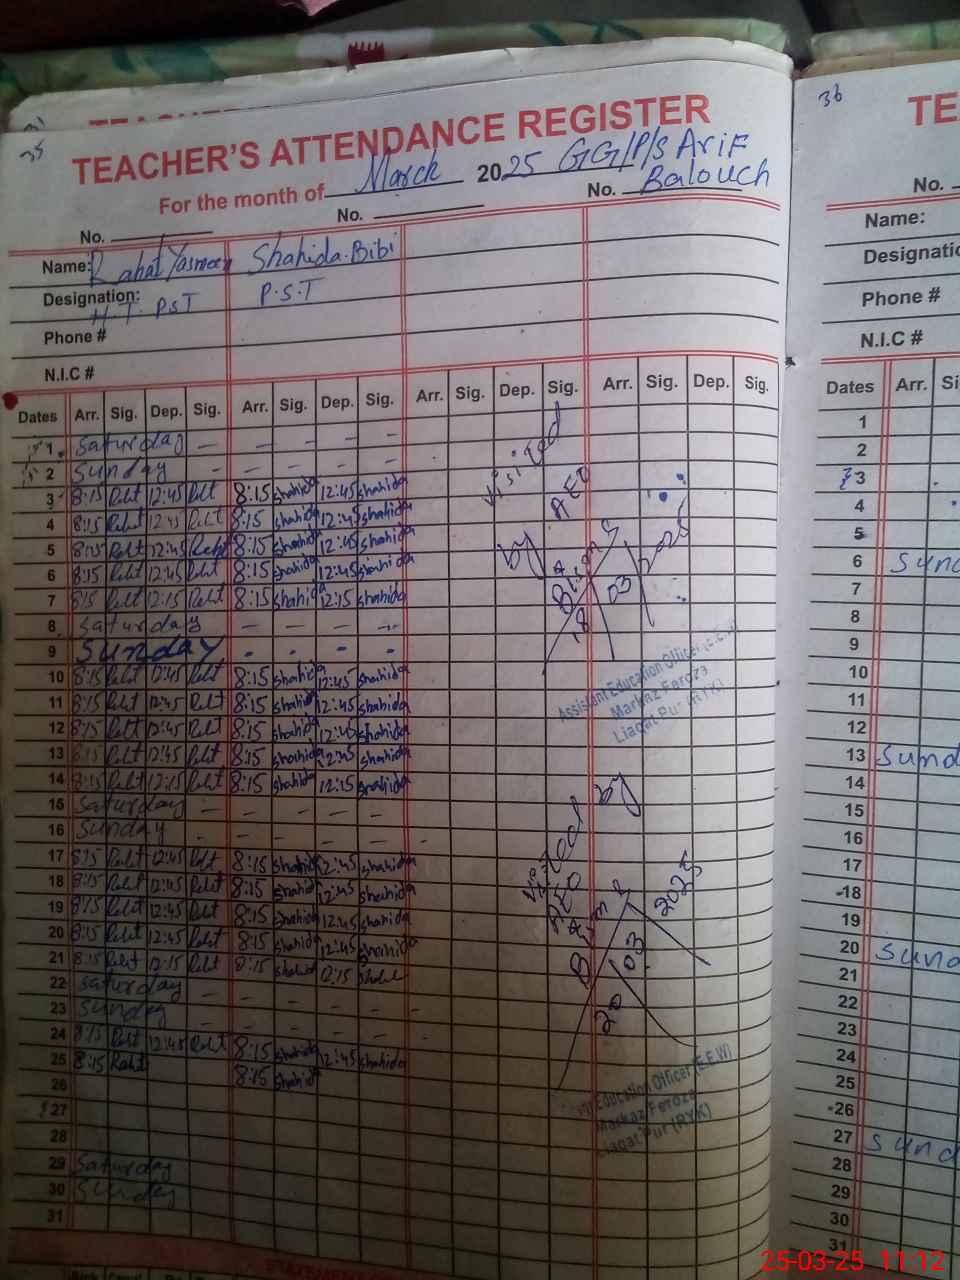 35
TEACHER'S ATTENDANCE REGISTER
For the month of March 2025 GG/P/S Arif
Balouch
No. No. No.
Name: Rahat Yasmeen Shahida.Bibi
Designation: H.T. P.S.T P.S.T
Phone #
N.I.C #
Dates Arr. Sig. Dep. Sig. Arr. Sig. Dep. Sig. Arr. Sig. Dep. Sig. Arr. Sig. Dep. Sig.
1 Saturday — — — — —
2 Sunday - — — — —
3 8:15 Raht 12:45 Raht 8:15 shahida 12:45 shahida
4 8:15 Raht 12:45 Raht 8:15 shahida 12:45 shahida
5 8:15 Raht 12:45 Raht 8:15 shahida 12:45 shahida
6 8:15 Raht 12:45 Raht 8:15 shahida 12:45 shahida
7 8:15 Raht 12:15 Raht 8:15 shahida 12:15 shahida
8 Saturday — — — —
9 Sunday - - - -
10 8:15 Raht 12:45 Raht 8:15 shahida 12:45 shahida
11 8:15 Raht 12:45 Raht 8:15 shahida 12:45 shahida
12 8:15 Raht 12:45 Raht 8:15 shahida 12:45 shahida
13 8:15 Raht 12:45 Raht 8:15 shahida 12:45 shahida
14 8:15 Raht 12:15 Raht 8:15 shahida 12:15 shahida
15 Saturday — — — — —
16 Sunday - — — — —
17 8:15 Raht 12:45 Raht 8:15 shahida 12:45 shahida
18 8:15 Raht 12:45 Raht 8:15 shahida 12:45 shahida
19 8:15 Raht 12:45 Raht 8:15 shahida 12:45 shahida
20 8:15 Raht 12:45 Raht 8:15 shahida 12:45 shahida
21 8:15 Raht 12:15 Raht 8:15 shahid 12:15
22 Saturday — — — — —
23 Sunday — — — — —
24 8:15 Raht 12:45 Raht 8:15 shahida 12:45 shahida
25 8:15 Raht 8:15 shahida
26
27
28
29 Saturday
30 Sunday
31
Visited
by AEO
18 03 2025
Assistant Education Officer (E.E.W)
Markaz Feroza
Liaqat Pur (RYK)
Visited by
AEO
20 03 2025
Education Officer (E.E.W)
Markaz Feroza
Liaqat Pur (RYK)
36
TE
No.
Name:
Designation
Phone #
N.I.C #
Dates Arr. Si
1
2
3
4
5
6 Sund
7
8
9
10
11
12
13 Sund
14
15
16
17
18
19
20 Sund
21
22
23
24
25
26
27 Sund
28
29
30
31
25-03-25 11:12